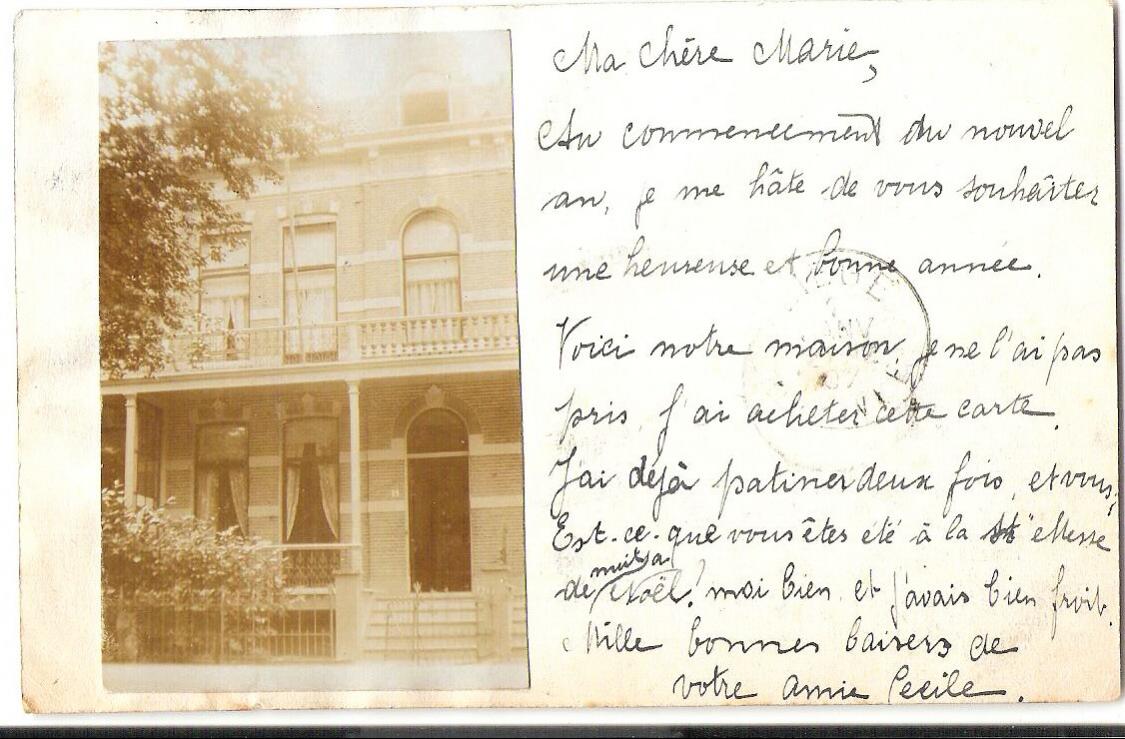 Ma chère Marie,
Au commencement du nouvel
an, je me hâte de vous souhaîter
une heureuse et bonne année.
Voici notre maison, je ne l'ai pas
pris, j'ai acheter cette carte.
J'ai déjà patiner deux fois, et vous,
Est-ce-que vous êtes été à la "Messe
de nuit à Noël? moi bien et j'avais bien froit.
Mille bonnes baisers de
votre amie Cecile.